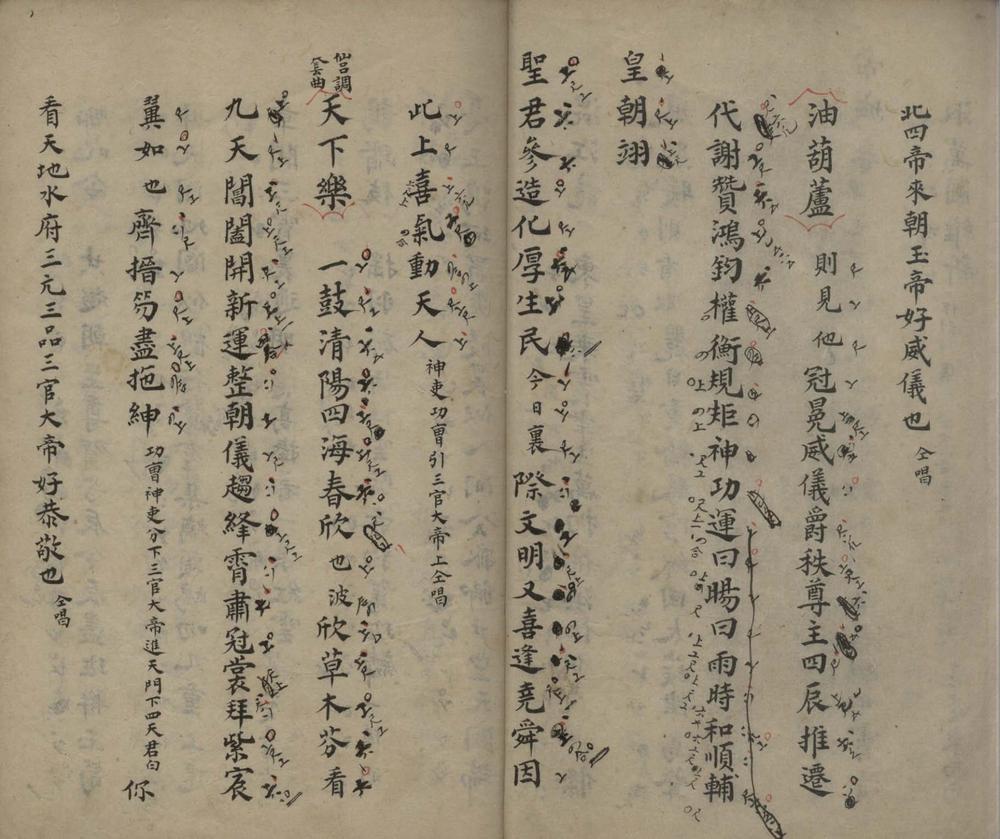 北四帝來朝玉帝好威儀也 仝唱
油葫蘆 則見他冠冕威儀爵秩尊主四辰推遷
代謝贊鴻鈞權衡規矩神功運曰暘曰雨時和順輔
皇朝翊
聖君參造化厚生民今日裏際文明又喜逢堯舜因
此上喜氣動天人 神吏功曹引三官大帝上仝唱
仙呂調
套曲
天下樂 一鼓清陽四海春欣也波欣草木芬看
九天閶闔開新運整朝儀趨絳霄肅冠裳拜紫宸
翼如也齊搢笏盡拖紳 功曹神吏分下三官大帝進天門下四天君白 你
看天地水府三元三品三官大帝好恭敬也 仝唱